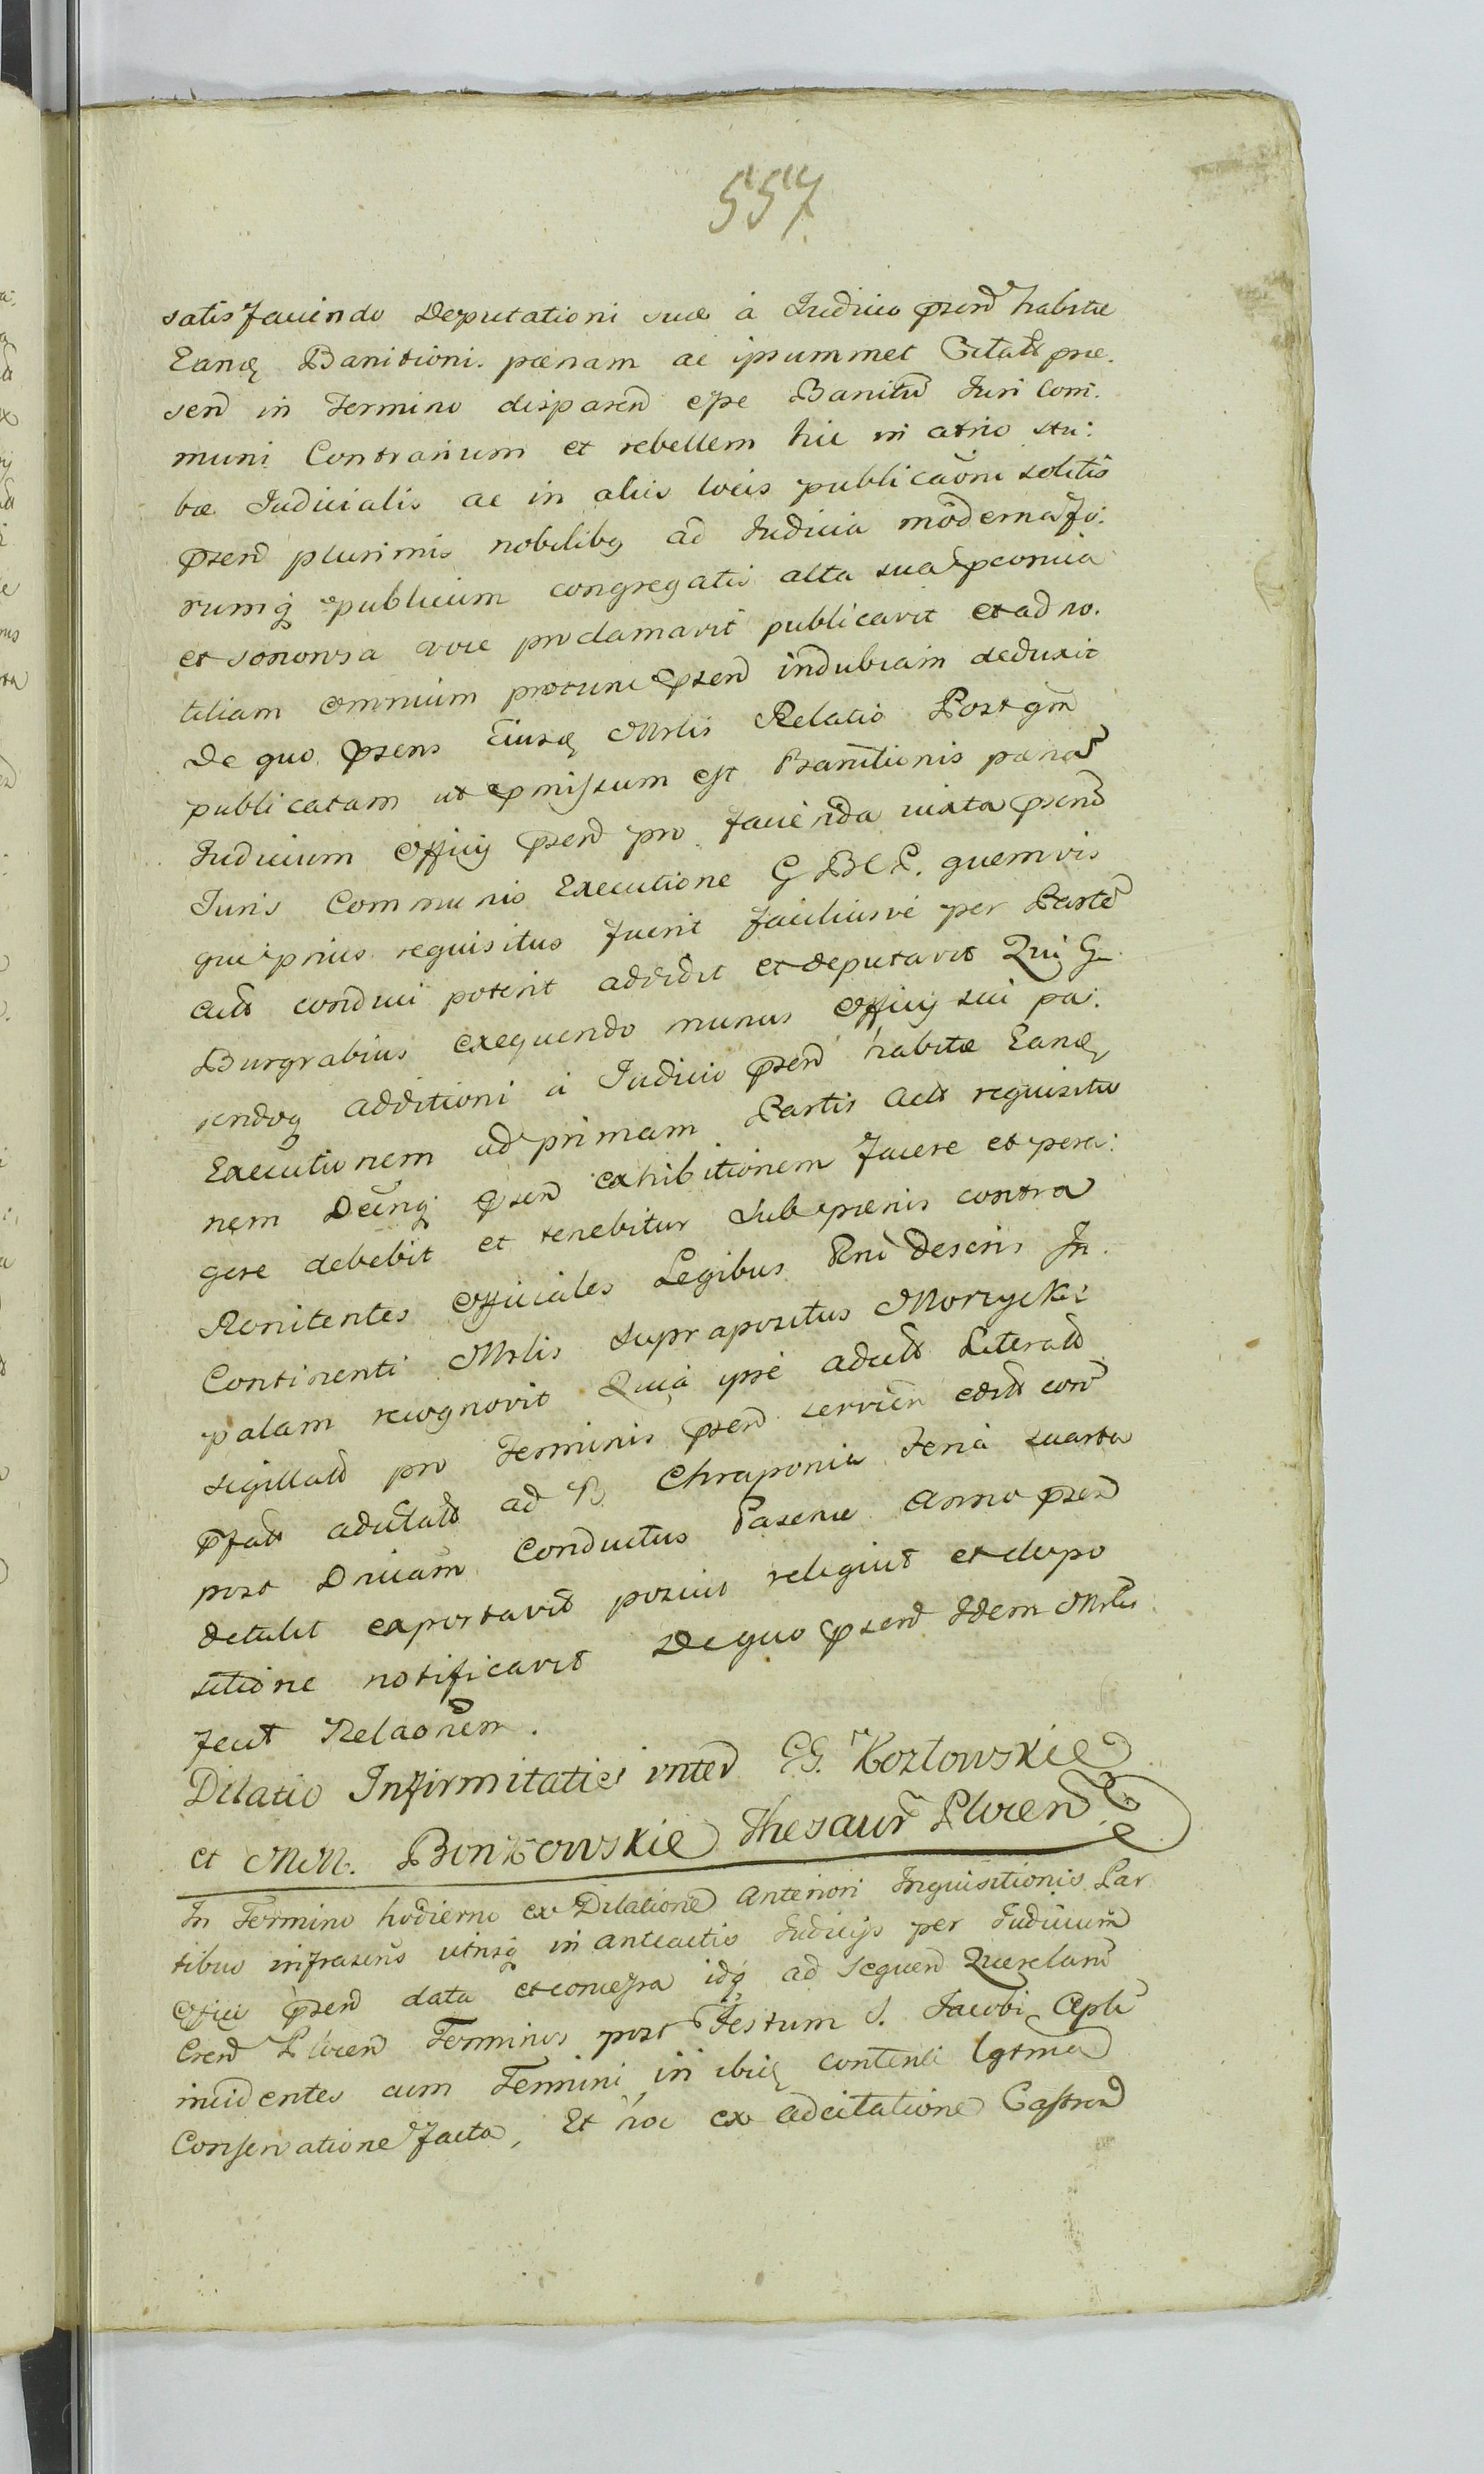 557
satisfaciendo Deputationi suæ à Judicio psen̄d habitæ
Eand Banitioni. pænam ac ipsummet Citatū præ.
sen̄d in Termino disparen̄d esse Banitū Juri Com.
muni Contrarium et rebellem hic in atrio stu:
bæ Judicialis ac in aliis locis publicaōni solitis
psen̄d plurimis nobilibq ad Judicia moderna fo:
rumq publicum congregatis alta sua pconia
et sonorosa voce proclamavit publicavit et ad no.
titiam omnium protunc psen̄d indubiam deduxit
De quo psens Eiusd Mrlis Relatio Post qm
publicatam ut pmissum est Banitionis pænā
Judicium Officij psen̄d pro facienda iuxta psen̄d
Juris Communis Executione G BCP. quemvis
qui prius requisitus fuerit faciliusve per Partē
actō conduci poterit addidit et deputavit Qui G.
Burgrabius exequendo munus Officij sui pa:
rendoq additioni à Judicio psen̄d habitæ Eand
Executionem ad primam Partis actō requisitio
nem Decnq psen̄d exhibitionem facere et pera:
gere debebit et tenebitur sub pænis contra
Renitentes Officiales Legibus Rni descris In
Continenti Mrlis suprapositus Morzycki
palam recognovit Quia ipse adcitō Literatō
sigillatō pro Terminis psen̄d servien̄ editō con̄
pfatō adcitatō ad B Chraponia Feria quarta
post Dnicam Conductus Paschæ anno psen̄d
detulit exportavit posuit reliquit et depo
sitione notificavit De quo psen̄d Idem Mrlis
fecit Relaonem.
Dilatio Infirmitatis inter GG. Kozłowskie
et MM. Bonkowskie Thesaur Plocen̄
In Termino hodierno ex Dilatione Anteriori Inquisitionis Par
tibus infrascris utrisq in anteactis Judicijs per Judicium
Officij psen̄d data et concessa idq ad sequen̄d Querelarū
Cren̄d Plocen̄d Terminos post Festum S. Jacobi Apli
incidentes cum Termini in ibid contenti lgtma
Conservatione facta, Et hoc ex adcitatione Castren̄d